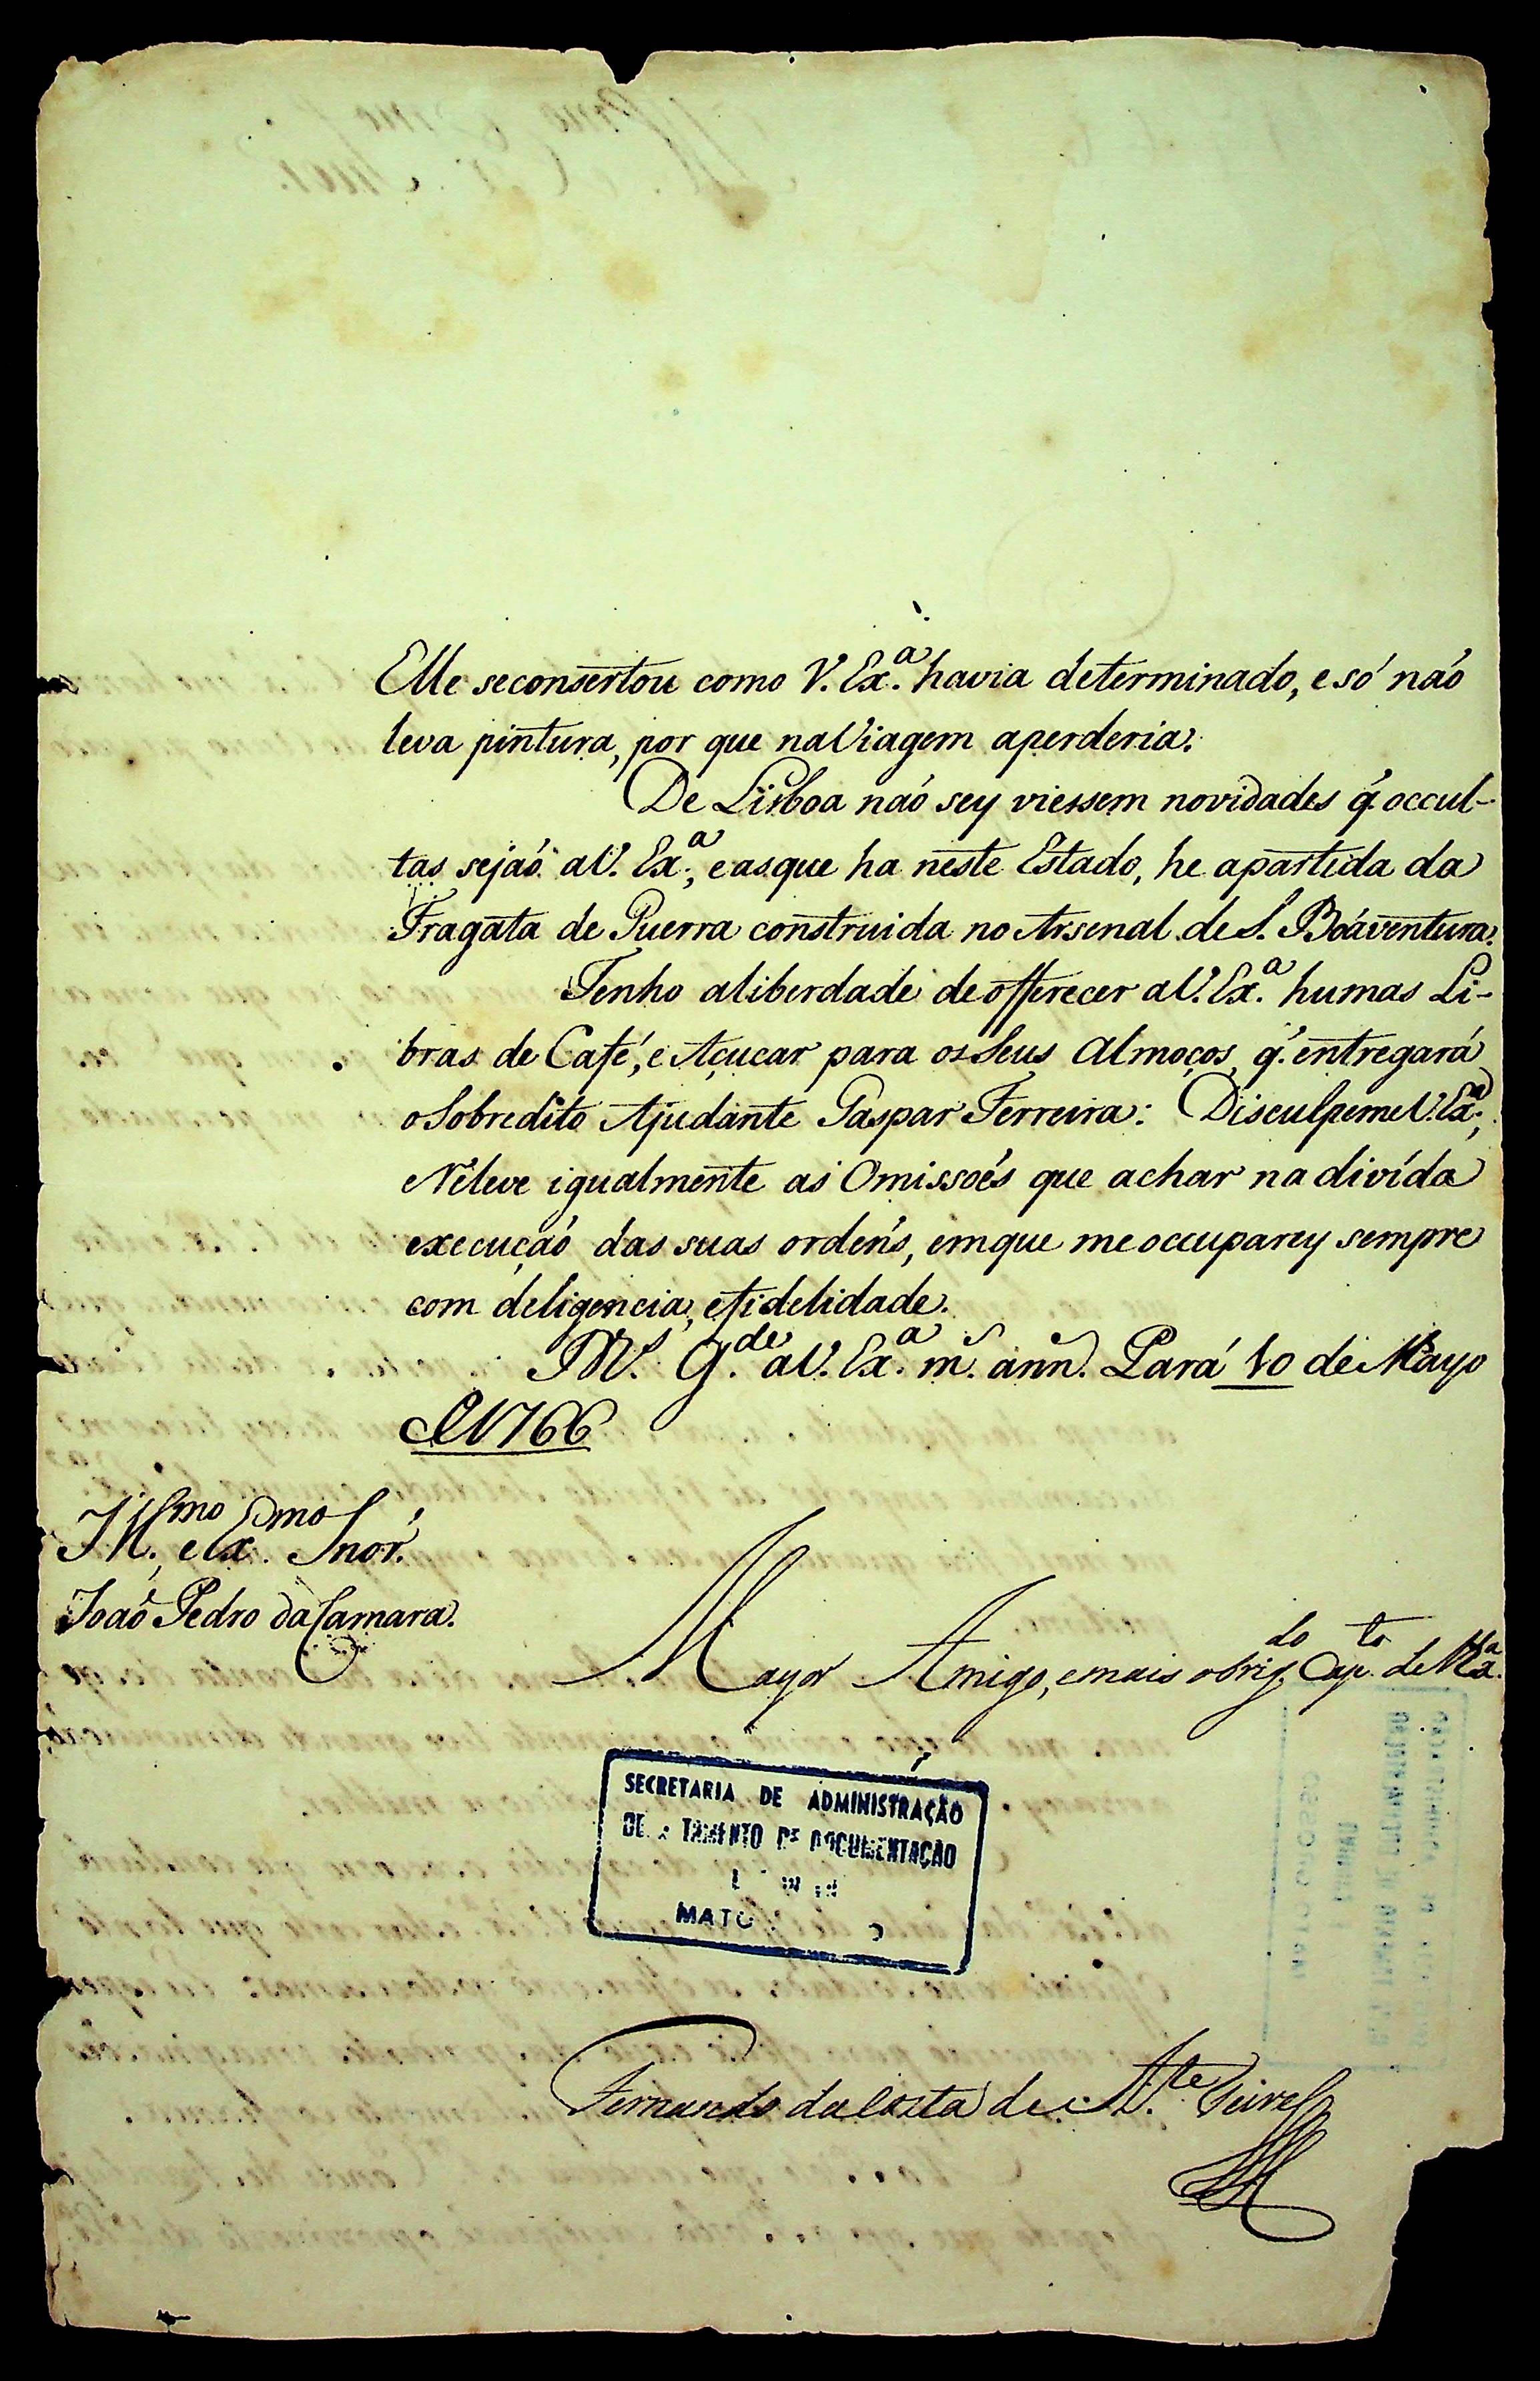 Elle seconsertou como V. Ex.ª havia determinado, e só naó
leva pintura, por que naViagem aperderia.
De Lisboa naó sey viessem novidades q̃. occul-
tas sejaó aV. Ex.ª, easque ha neste Estado, he apartida da
Fragata de Guerra construida no Arsenal de S. Boáventura.
Tenho aliberdade deofferecer aV. Ex.ª humas Li-
bras de Café, e Açucar para os Seus Almoços, q̃. entregará
oSobredito Ajudante Gaspar Ferreira: DisculpemeV. Ex.ª,
Releve igualmente as Omissoés que achar na divída
execuçaó das suas ordens, emque me occuparey sempre
com deligencia, efidelidade.
G.de aV. Ex.ª m.s ann.s Pará 10 de Mayo
de 1766
Ill.mo, e Ex.mo Snór.
Joaó Pedro da Camara.
Mayor Amigo, emais obrig.do Cap.to de V. Ex.ª
SECRETARIA DE ADMINISTRAÇÃO
DE TAMENTO DE DOCUMENTAÇÃO
MATO O
Fernando da Costa de At.de Teive